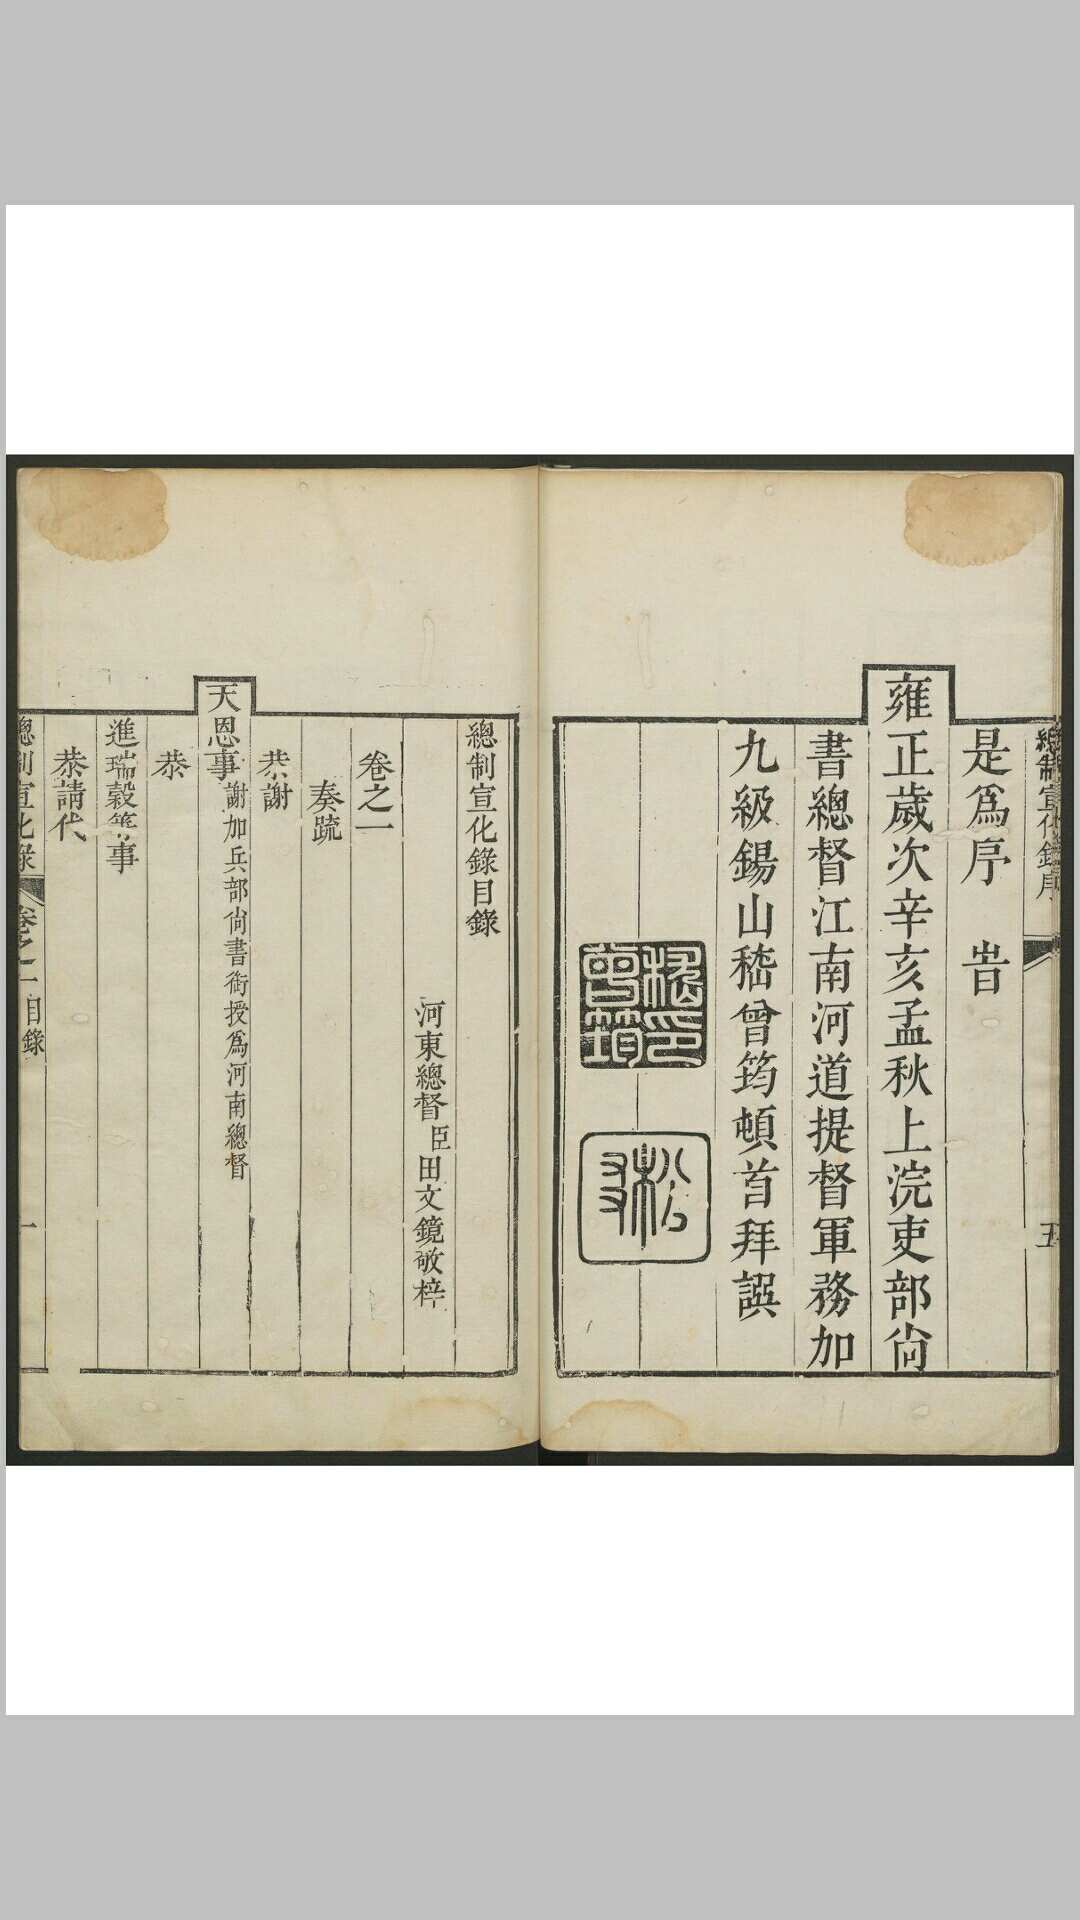 總制宣化錄序
五
是爲序　旹
雍正歲次辛亥孟秋上浣吏部尙
書總督江南河道提督軍務加
九級錫山嵇曾筠頓首拜譔
嵇曾筠印
松友
總制宣化錄目錄
河東總督臣田文鏡敬梓
卷之一
奏疏
恭謝
天恩事謝加兵部尙書銜授爲河南總督
恭
進瑞穀等事
恭請代
總制宣化錄　卷之一目錄
一